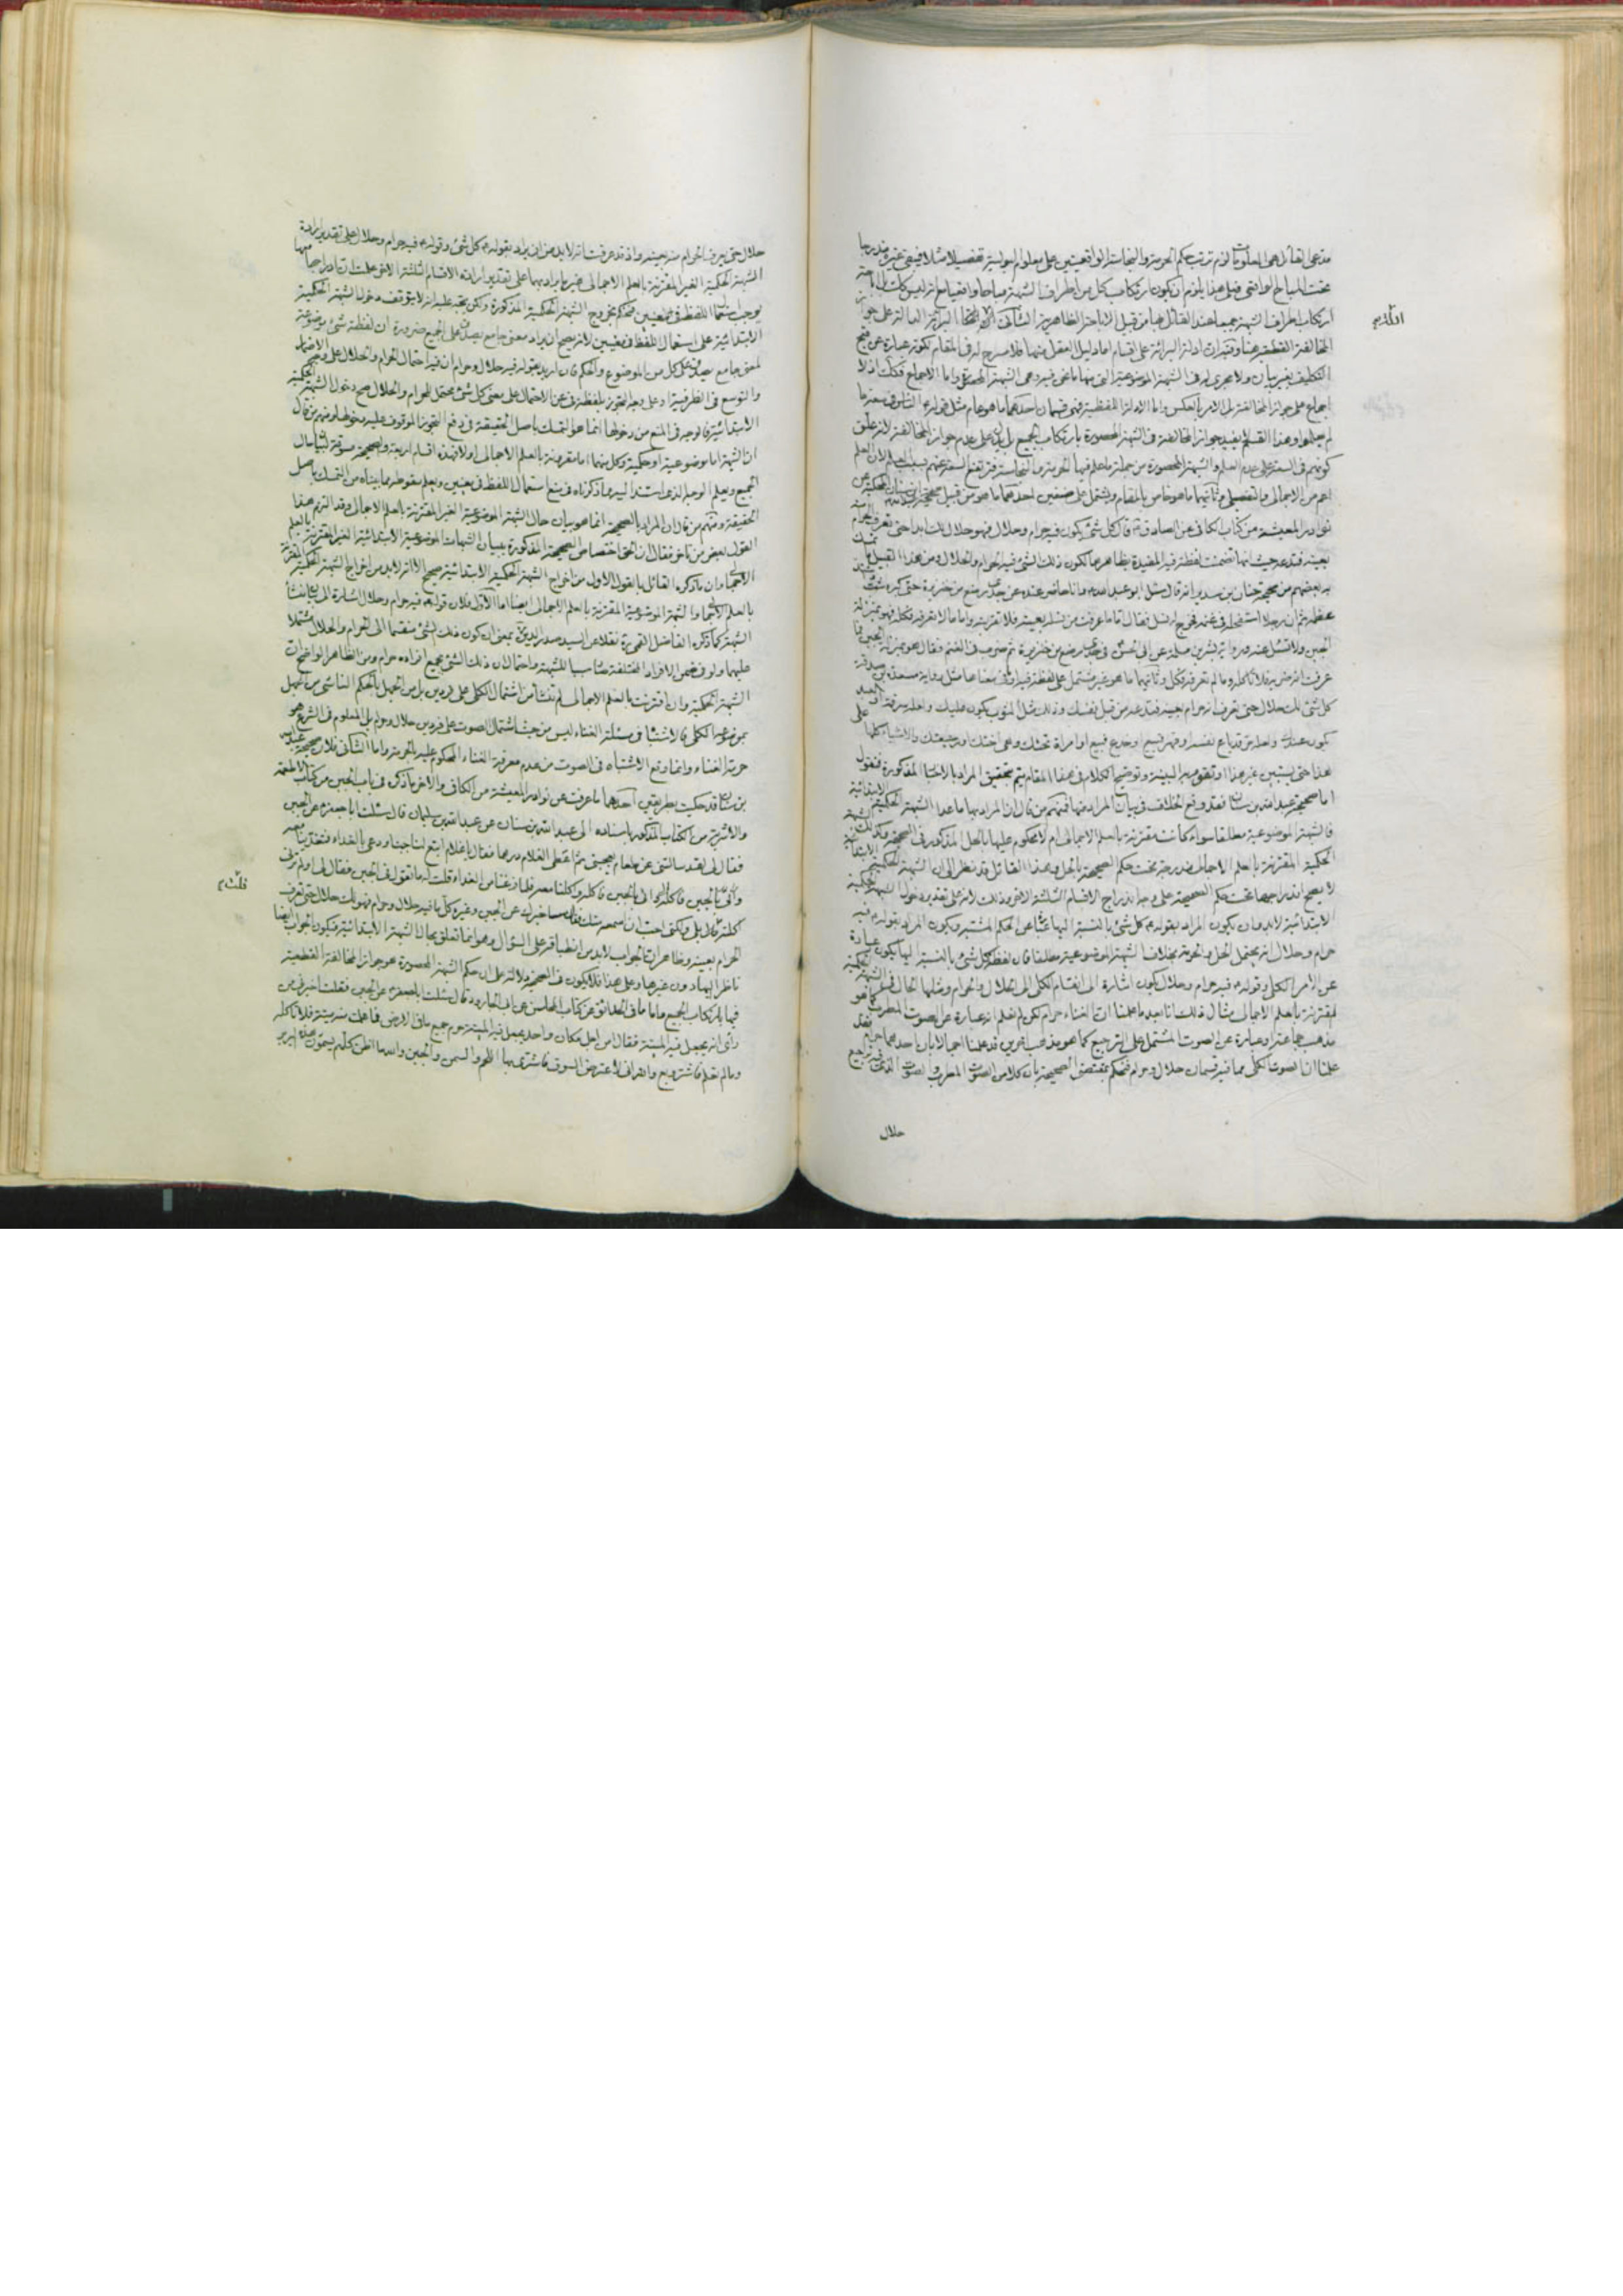 مدعى القائل هى المعلومات لزم ترتب حكم الحرمة والنجاسة الواقعيتين على معلوم البولية تفصيلا مثلا فيبقى غيره مندرجا
تحت المباح الواقعى وعلى هذا يلزم ان يكون ارتكاب كل من اطراف الشبهة مباحا واقعيا مع انه ليس كذلك
ارتكاب اطراف الشبهة جميعا عند القائل هنا من قبيل الاباحة الظاهرية الثانى البرائة الدالة على جواز
المخالفة القطعية هنا وتقريره ان ادلة البرائة على اقسام اما دليل العقل منها فلا مسرح له فى المقام لكونه عبارة عن قبح
التكليف بغير بيان ولا مجرى له فى الشبهة الموضوعية التى منها ما نحن فيه وهى الشبهة المحصورة واما الاجماع فكذلك اذ لا
اجماع على جواز المخالفة بل الامر بالعكس واما الادلة اللفظية فهى قسمان احدهما ما هو عام مثل قوله الناس فى سعة ما
لم يعلموا وهذا القسم لا يفيد جواز المخالفة فى الشبهة المحصورة بارتكاب الجميع بل يدل على عدم جواز المخالفة لانه علق
كونهم فى السعة على عدم العلم والشبهة المحصورة من جملة ما علم فيها الحرمة والنجاسة فترتفع السعة عنهم بسبب العلم لان العلم
اعم من الاجمالى والتفصيلى وثانيهما ما هو خاص بالمقام ويشتمل على صنفين احدهما ما هو من قبيل صحيحة
نوادر المعيشة من كتاب الكافى عن الصادق قال كل شئ يكون فيه حرام وحلال فهو حلال لك ابدا حتى تعرف الحرام
بعينه فتدعه حيث انها تضمنت لفظة فيه المفيدة بظاهرها لكون ذلك الشئ فيه الحرام والحلال ومن هذا القبيل ما تمسك
به بعضهم من صحيحة حنان بن سدير انه قال سئل ابو عبد الله وانا حاضر عنده عن جدى رضع من خنزيرة حتى كبر وشب واشتد
عظمه ثم ان رجلا استفحله فى غنمه فخرج له نسل فقال اما ما عرفت من نسله بعينه فلا تقربنه واما ما لا تعرفه فكله فهو بمنزلة
الجبن ولا تسئل عنه ورواية بشر بن مسلمة عن ابى الحسن فى جدى رضع من خنزيرة ثم ضرب فى الغنم فقال هو بمنزلة الجبن فما
عرفت انه ضربه فلا تاكله وما لم تعرفه فكل وثانيهما ما هو غير مشتمل على لفظة فيه او معناها مثل رواية مسعدة بن صدقة
كل شئ لك حلال حتى تعرف انه حرام بعينه فتدعه من قبل نفسك وذلك مثل الثوب يكون عليك ولعله سرقة او العبد
يكون عندك ولعله حر قد باع نفسه او قهر فبيع او خدع فبيع او امراة تحتك وهى اختك او رضيعتك والاشياء كلها على
هذا حتى يستبين غير هذا او تقوم به البينة وتوضيح الكلام فى هذا المقام يتم بتحقيق المراد بالاخبار المذكورة فنقول
اما صحيحة عبد الله بن سنان فقد وقع الخلاف فى بيان المراد منها فمنهم من قال ان المراد بها ما عدا الشبهة الحكمية الابتدائية
فالشبهة الموضوعية مطلقا سواء كانت مقترنة بالعلم الاجمالى ام لا محكوم عليها بالحل المذكور فى الصحيحة وكذلك الشبهة
الحكمية المقترنة بالعلم الاجمالى مندرجة تحت حكم الصحيحة بالحل وهذا القائل قد نظر الى ان الشبهة الحكمية الابتدائية
لا يصح اندراجها تحت حكم الصحيحة على وجه اندراج الاقسام الثلثة الاخر وذلك لانه على تقدير دخول الشبهة الحكمية
الابتدائية لا بد وان يكون المراد بقوله كل شئ بالنسبة اليها عبارة عن الحكم المشتبه ويكون المراد بقوله فيه
حرام وحلال انه يحتمل الحل والحرمة بخلاف الشبهة الموضوعية مطلقا فان لفظة كل شئ بالنسبة اليها يكون عبارة
عن الامر الكلى وقوله فيه حرام وحلال يكون اشارة الى انقسام الكلى الى الحلال والحرام ومثلها الحال فى الشبهة الحكمية
المقترنة بالعلم الاجمالى مثال ذلك انا بعد ما علمنا ان الغناء حرام لكن لم نعلم انه عبارة عن الصوت المطرب كما هو
مذهب جماعة او عبارة عن الصوت المشتمل على الترجيع كما هو مذهب اخرين قد علمنا اجمالا بان احدهما حرام فقد
علمنا ان الصوت الكلى مما فيه قسمان حلال وحرام فنحكم بمقتضى الصحيحة بان كلا من الصوت المطرب والصوت الذى فيه ترجيع
حلال
حلال حتى يعرف الحرام منه بعينه واذ قد عرفت انه لا بد من ان يراد بقوله كل شئ وقوله فيه حرام وحلال على تقدير ارادة
الشبهة الحكمية الغير المقترنة بالعلم الاجمالى غير ما يراد بهما على تقدير ارادة الاقسام الثلثة الاخر علمت ان ادراجها
يوجب استعمال اللفظ فى معنيين فنحكم بخروج الشبهة الحكمية المذكورة ولكن يتجه عليه انه لا يتوقف دخول الشبهة الحكمية
الابتدائية على استعمال اللفظ فى معنيين لانه يصح ان يراد معنى جامع يصدق على الجميع ضرورة ان لفظة شئ موضوعة
لمعنى جامع يصدق على كل من الموضوع والحكم فان اريد بقوله فيه حلال وحرام ان فيه احتمال الحرام والحلال على وجه الاضمار
والتوسع فى الظرفية او على وجه التجوز بلفظة فى عن الاحتمال على معنى كل شئ محتمل للحرام والحلال صح دخول الشبهة الحكمية
الابتدائية فالوجه فى المنع من دخولها انما هو التمسك باصل الحقيقة فى دفع التجوز الموقوف عليه دخولها ومنهم من قال
ان الشبهة اما موضوعية او حكمية وكل منهما اما مقرونة بالعلم الاجمالى اولا فهذه اقسام اربعة والصحيحة مسوقة لبيان حال
الجميع ويعلم الوجه الذى استند اليه مما ذكرناه فى منع استعمال اللفظ فى معنيين ويعلم سقوطه مما بيناه من التمسك باصل
الحقيقة ومنهم من قال ان المراد بالصحيحة انما هو بيان حال الشبهة الموضوعية الغير المقترنة بالعلم الاجمالى وقد التزم هذا
القول بعض من تاخر فقال ان الحق اختصاص الصحيحة المذكورة ببيان الشبهات الموضوعية الابتدائية الغير المقترنة بالعلم
الاجمالى وان ما ذكره القائل بالقول الاول من اخراج الشبهة الحكمية الابتدائية صحيح الا انه لا بد من اخراج الشبهة الحكمية المقترنة
بالعلم الاجمالى والشبهة الموضوعية المقترنة بالعلم الاجمالى ايضا اما الاول فلان قوله فيه حرام وحلال اشارة الى بيان منشأ
الشبهة كما ذكره الفاضل القمى نقلا عن السيد صدر الدين بمعنى ان كون ذلك الشئ منقسما الى الحرام والحلال مشتملا
عليهما ولو فى ضمن الافراد المختلفة صار سببا للشبهة واحتمال ان ذلك الشئ بجميع افراده حرام ومن الظاهر الواضح ان
الشبهة الحكمية وان اقترنت بالعلم الاجمالى لم تنشأ من اشتمال الكلى على فردين بل من الجهل بالحكم الناشى من الجهل
بموضوعه الكلى فالاشتباه فى مسئلة الغناء ليس من حيث اشتمال الصوت على فردين حلال وحرام بل المعلوم فى الشرع هو
حرمة الغناء وانما وقع الاشتباه فى الصوت من عدم معرفة الغناء المحكوم عليه بالحرمة واما الثانى فلان صحيحة عبد الله
بن سنان قد حكيت بطريقين احدهما ما عرفت عن نوادر المعيشة من الكافى والاخر ما ذكره فى باب الجبن من كتاب الاطعمة
والاشربة من الكتاب المذكور باسناده الى عبد الله بن سنان عن عبد الله بن سليمان قال سئلت ابا جعفر عن الجبن
فقال لى لقد سالتنى عن طعام يعجبنى ثم اعطى الغلام درهما فقال يا غلام ابتع لنا جبنا ودعى بالغداء فتغدينا معه
واتى بالجبن فاكل وقال لى بالجبن فاكله واكلنا معه فلما فرغنا من الغداء قلت له ما تقول فى الجبن فقال لى او لم ترنى
اكلته قال بلى ولكنى احب ان اسمعه منك فقال ساخبرك عن الجبن وغيره كل ما فيه حلال وحرام فهو لك حلال حتى تعرف
الحرام بعينه وظاهر ان الجواب لا بد من انطباقه على السؤال وهو انما تعلق بحال الشبهة الابتدائية فيكون الجواب ايضا
ناظرا اليها دون غيرها وعلى هذا فلا يكون فى الصحيحة دلالة على ان حكم الشبهة المحصورة هو جواز المخالفة القطعية
فيها بارتكاب الجميع واما ما فى الحدائق عن كتاب المحاسن عن ابى الجارود قال سئلت ابا جعفر عن الجبن فقلت اخبرنى من
راى انه يجعل فيه الميتة فقال امن اجل مكان واحد يجعل فيه الميتة حرم جميع ما فى الارض فما علمت منه ميتة فلا تاكله
وما لم تعلم فاشتر وبع والله انى لاعترض السوق فاشترى بها اللحم والسمن والجبن والله ما اظن كلهم يسمون هذه البربر